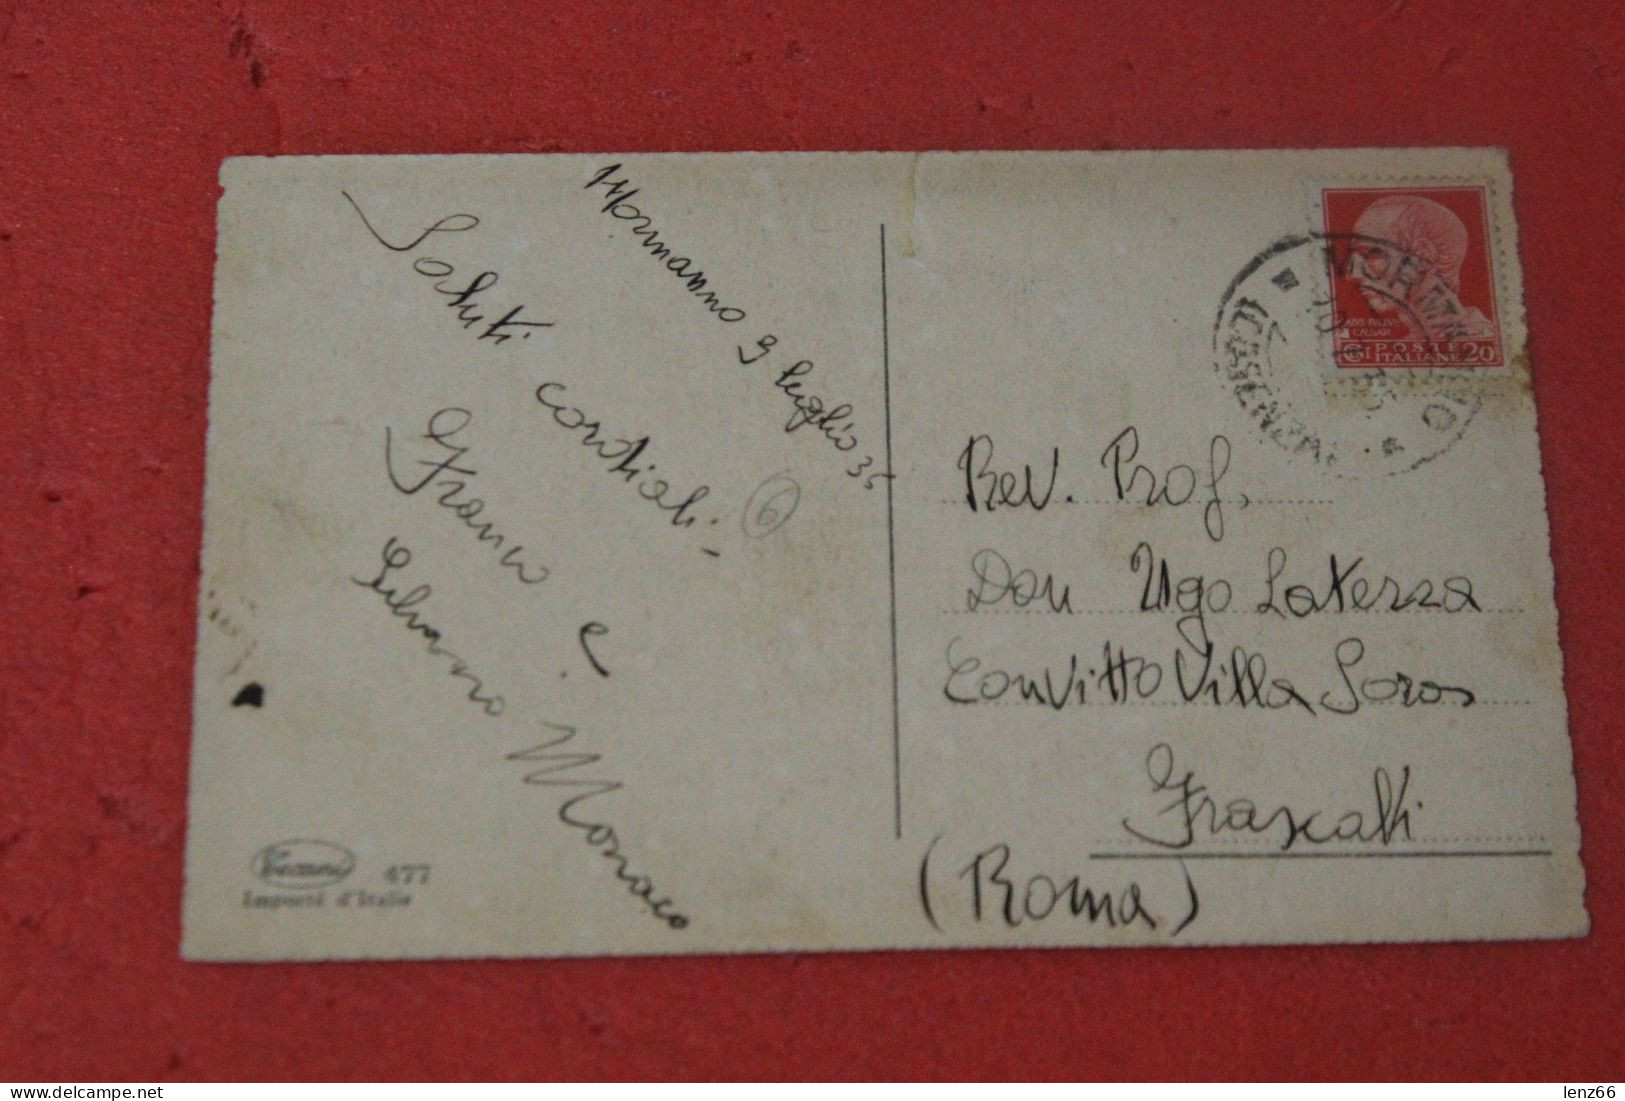 Mormanno 9 luglio 35
Saluti cordiali -
Franco e
Silvano Monaco
6
477
Importé d'Italie
MORMANNO
(COSENZA)
CAESAR
CENT POSTE ITALIANE 20
Rev. Prof.
Don Ugo Laterza
Convitto Villa Soros
Frascati
(Roma)
delcampe.net
lenz66